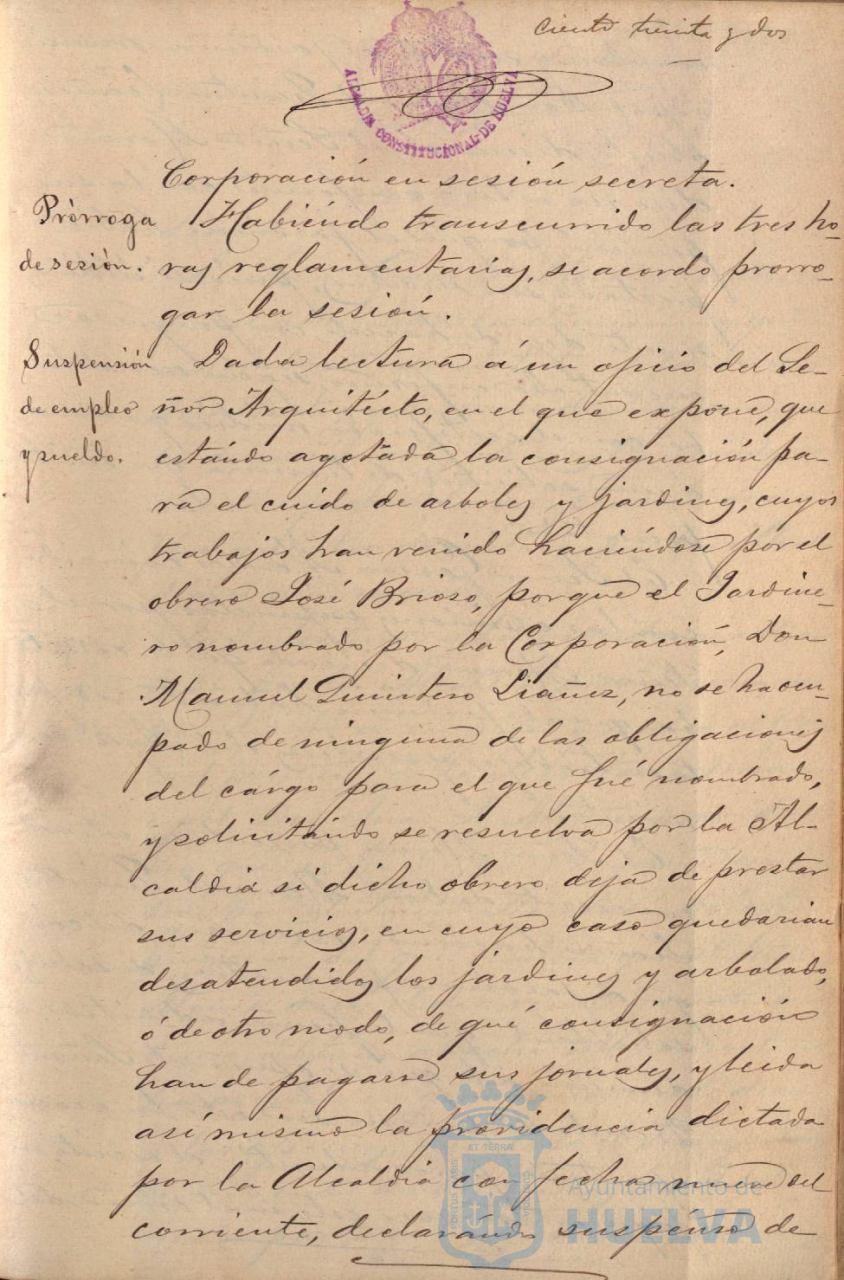 ciento treinta y dos
ALCALDIA CONSTITUCIONAL DE HUELVA
Corporación en sesión secreta.
Prórroga
de sesión.
Habiéndo transcurrido las tres ho-
ras reglamentarias, se acordo prorro-
gar la sesión.
Suspensión
de empleo
y sueldo.
Dada lectura á un oficio del Se-
ñor Arquitécto, en el que expone, que
estándo agotada la consignación pa-
ra el cuido de arboles y jardines, cuyos
trabajos han venido haciéndose por el
obrero José Brioso, porque el Jardine-
ro nombrado por la Corporación, Don
Manuel Quintero Liañez, no se ha ocu-
pado de ninguna de las obligaciones
del cárgo para el que fué nombrado,
y solicitándo se resuelva por la Al-
caldia si dicho obrero deja de prestar
sus servicios, en cuyo caso quedarian
desatendidos los jardines y arbolado,
ó de otro modo, de qué consignación
han de pagarse sus jornales, y leida
así mismo la providencia dictada
por la Alcaldia con fecha nueve del
corriente, declarando suspénso de
Ayuntamiento de
HUELVA